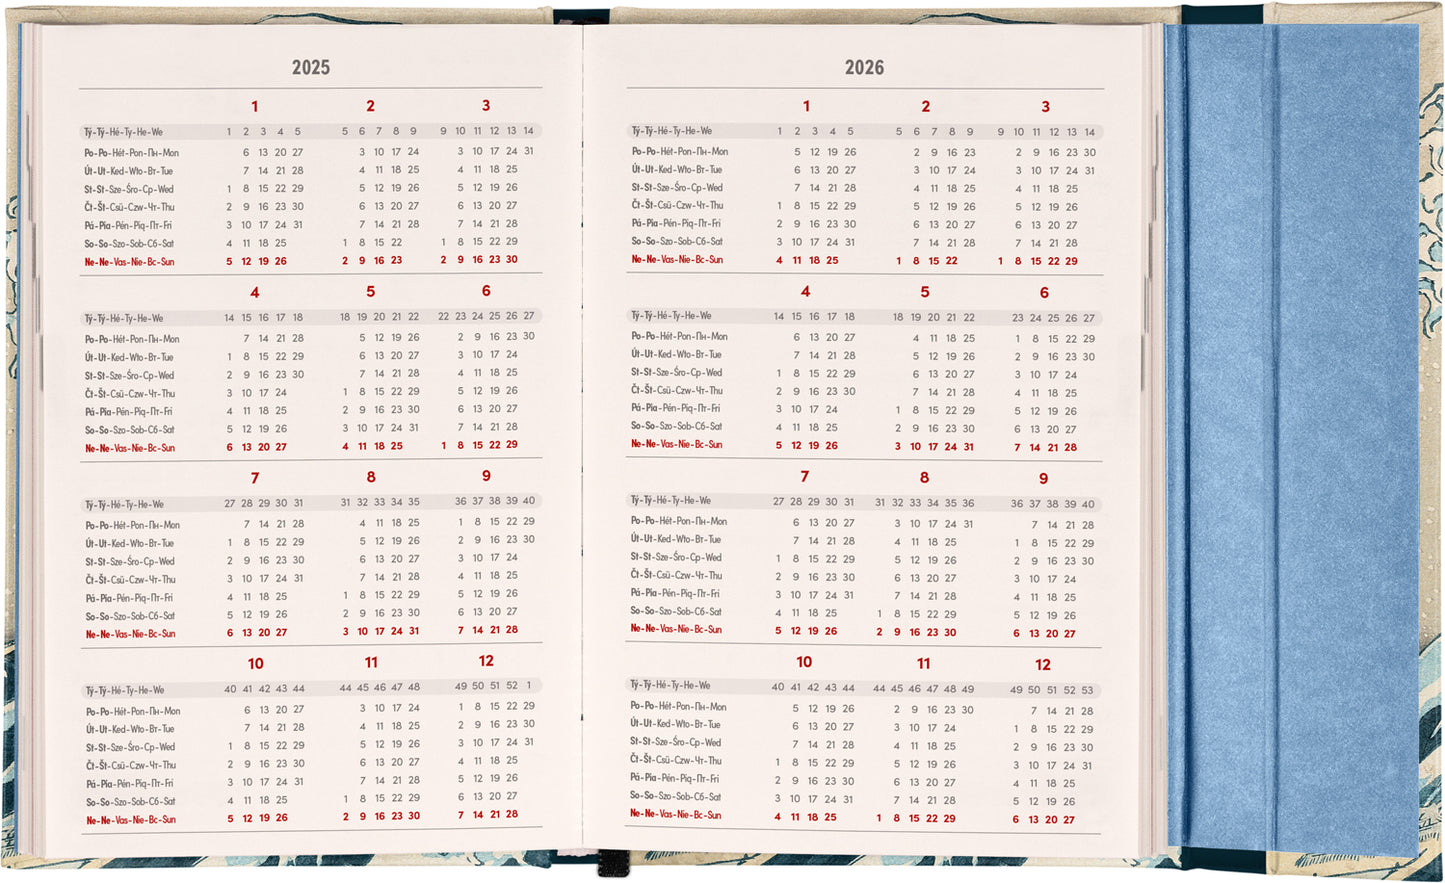 2025
1 2 3
Tý-Tý-Hé-Ty-He-We 1 2 3 4 5 5 6 7 8 9 9 10 11 12 13 14
Po-Po-Hét-Pon-Пн-Mon 6 13 20 27 3 10 17 24 3 10 17 24 31
Út-Ut-Ked-Wto-Вт-Tue 7 14 21 28 4 11 18 25 4 11 18 25
St-St-Sze-Śro-Ср-Wed 1 8 15 22 29 5 12 19 26 5 12 19 26
Čt-Št-Csü-Czw-Чт-Thu 2 9 16 23 30 6 13 20 27 6 13 20 27
Pá-Pia-Pén-Piq-Пт-Fri 3 10 17 24 31 7 14 21 28 7 14 21 28
So-So-Szo-Sob-Сб-Sat 4 11 18 25 1 8 15 22 1 8 15 22 29
Ne-Ne-Vas-Nie-Вс-Sun 5 12 19 26 2 9 16 23 2 9 16 23 30
4 5 6
Tý-Tý-Hé-Ty-He-We 14 15 16 17 18 18 19 20 21 22 22 23 24 25 26 27
Po-Po-Hét-Pon-Пн-Mon 7 14 21 28 5 12 19 26 2 9 16 23 30
Út-Ut-Ked-Wto-Вт-Tue 1 8 15 22 29 6 13 20 27 3 10 17 24
St-St-Sze-Śro-Ср-Wed 2 9 16 23 30 7 14 21 28 4 11 18 25
Čt-Št-Csü-Czw-Чт-Thu 3 10 17 24 1 8 15 22 29 5 12 19 26
Pá-Pia-Pén-Piq-Пт-Fri 4 11 18 25 2 9 16 23 30 6 13 20 27
So-So-Szo-Sob-Сб-Sat 5 12 19 26 3 10 17 24 31 7 14 21 28
Ne-Ne-Vas-Nie-Вс-Sun 6 13 20 27 4 11 18 25 1 8 15 22 29
7 8 9
Tý-Tý-Hé-Ty-He-We 27 28 29 30 31 31 32 33 34 35 36 37 38 39 40
Po-Po-Hét-Pon-Пн-Mon 7 14 21 28 4 11 18 25 1 8 15 22 29
Út-Ut-Ked-Wto-Вт-Tue 1 8 15 22 29 5 12 19 26 2 9 16 23 30
St-St-Sze-Śro-Ср-Wed 2 9 16 23 30 6 13 20 27 3 10 17 24
Čt-Št-Csü-Czw-Чт-Thu 3 10 17 24 31 7 14 21 28 4 11 18 25
Pá-Pia-Pén-Piq-Пт-Fri 4 11 18 25 1 8 15 22 29 5 12 19 26
So-So-Szo-Sob-Сб-Sat 5 12 19 26 2 9 16 23 30 6 13 20 27
Ne-Ne-Vas-Nie-Вс-Sun 6 13 20 27 3 10 17 24 31 7 14 21 28
10 11 12
Tý-Tý-Hé-Ty-He-We 40 41 42 43 44 44 45 46 47 48 49 50 51 52 1
Po-Po-Hét-Pon-Пн-Mon 6 13 20 27 3 10 17 24 1 8 15 22 29
Út-Ut-Ked-Wto-Вт-Tue 7 14 21 28 4 11 18 25 2 9 16 23 30
St-St-Sze-Śro-Ср-Wed 1 8 15 22 29 5 12 19 26 3 10 17 24 31
Čt-Št-Csü-Czw-Чт-Thu 2 9 16 23 30 6 13 20 27 4 11 18 25
Pá-Pia-Pén-Piq-Пт-Fri 3 10 17 24 31 7 14 21 28 5 12 19 26
So-So-Szo-Sob-Сб-Sat 4 11 18 25 1 8 15 22 29 6 13 20 27
Ne-Ne-Vas-Nie-Вс-Sun 5 12 19 26 2 9 16 23 30 7 14 21 28
2026
1 2 3
Tý-Tý-Hé-Ty-He-We 1 2 3 4 5 5 6 7 8 9 9 10 11 12 13 14
Po-Po-Hét-Pon-Пн-Mon 5 12 19 26 2 9 16 23 2 9 16 23 30
Út-Ut-Ked-Wto-Вт-Tue 6 13 20 27 3 10 17 24 3 10 17 24 31
St-St-Sze-Śro-Ср-Wed 7 14 21 28 4 11 18 25 4 11 18 25
Čt-Št-Csü-Czw-Чт-Thu 1 8 15 22 29 5 12 19 26 5 12 19 26
Pá-Pia-Pén-Piq-Пт-Fri 2 9 16 23 30 6 13 20 27 6 13 20 27
So-So-Szo-Sob-Сб-Sat 3 10 17 24 31 7 14 21 28 7 14 21 28
Ne-Ne-Vas-Nie-Вс-Sun 4 11 18 25 1 8 15 22 1 8 15 22 29
4 5 6
Tý-Tý-Hé-Ty-He-We 14 15 16 17 18 18 19 20 21 22 23 24 25 26 27
Po-Po-Hét-Pon-Пн-Mon 6 13 20 27 4 11 18 25 1 8 15 22 29
Út-Ut-Ked-Wto-Вт-Tue 7 14 21 28 5 12 19 26 2 9 16 23 30
St-St-Sze-Śro-Ср-Wed 1 8 15 22 29 6 13 20 27 3 10 17 24
Čt-Št-Csü-Czw-Чт-Thu 2 9 16 23 30 7 14 21 28 4 11 18 25
Pá-Pia-Pén-Piq-Пт-Fri 3 10 17 24 1 8 15 22 29 5 12 19 26
So-So-Szo-Sob-Сб-Sat 4 11 18 25 2 9 16 23 30 6 13 20 27
Ne-Ne-Vas-Nie-Вс-Sun 5 12 19 26 3 10 17 24 31 7 14 21 28
7 8 9
Tý-Tý-Hé-Ty-He-We 27 28 29 30 31 31 32 33 34 35 36 36 37 38 39 40
Po-Po-Hét-Pon-Пн-Mon 6 13 20 27 3 10 17 24 31 7 14 21 28
Út-Ut-Ked-Wto-Вт-Tue 7 14 21 28 4 11 18 25 1 8 15 22 29
St-St-Sze-Śro-Ср-Wed 1 8 15 22 29 5 12 19 26 2 9 16 23 30
Čt-Št-Csü-Czw-Чт-Thu 2 9 16 23 30 6 13 20 27 3 10 17 24
Pá-Pia-Pén-Piq-Пт-Fri 3 10 17 24 31 7 14 21 28 4 11 18 25
So-So-Szo-Sob-Сб-Sat 4 11 18 25 1 8 15 22 29 5 12 19 26
Ne-Ne-Vas-Nie-Вс-Sun 5 12 19 26 2 9 16 23 30 6 13 20 27
10 11 12
Tý-Tý-Hé-Ty-He-We 40 41 42 43 44 44 45 46 47 48 49 49 50 51 52 53
Po-Po-Hét-Pon-Пн-Mon 5 12 19 26 2 9 16 23 30 7 14 21 28
Út-Ut-Ked-Wto-Вт-Tue 6 13 20 27 3 10 17 24 1 8 15 22 29
St-St-Sze-Śro-Ср-Wed 7 14 21 28 4 11 18 25 2 9 16 23 30
Čt-Št-Csü-Czw-Чт-Thu 1 8 15 22 29 5 12 19 26 3 10 17 24 31
Pá-Pia-Pén-Piq-Пт-Fri 2 9 16 23 30 6 13 20 27 4 11 18 25
So-So-Szo-Sob-Сб-Sat 3 10 17 24 31 7 14 21 28 5 12 19 26
Ne-Ne-Vas-Nie-Вс-Sun 4 11 18 25 1 8 15 22 29 6 13 20 27